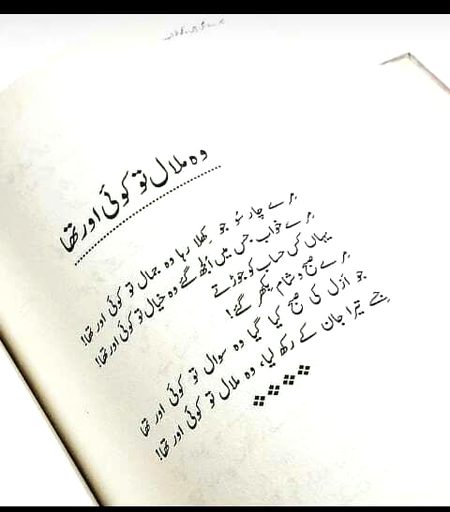 وہ ملال تو کوئی اور تھا
مرے چار سُو جو کِھلا رہا وہ جمال تو کوئی اور تھا!
مرے خواب جس میں اُلجھ گئے وہ خیال تو کوئی اور تھا!
یہاں کس حساب کو جوڑتے
مرے صبح و شام بکھر گئے!
جو اَزل کی صبح کیا گیا وہ سوال تو کوئی اور تھا
جسے تیرا جان کے رکھ لیا، وہ ملال تو کوئی اور تھا!